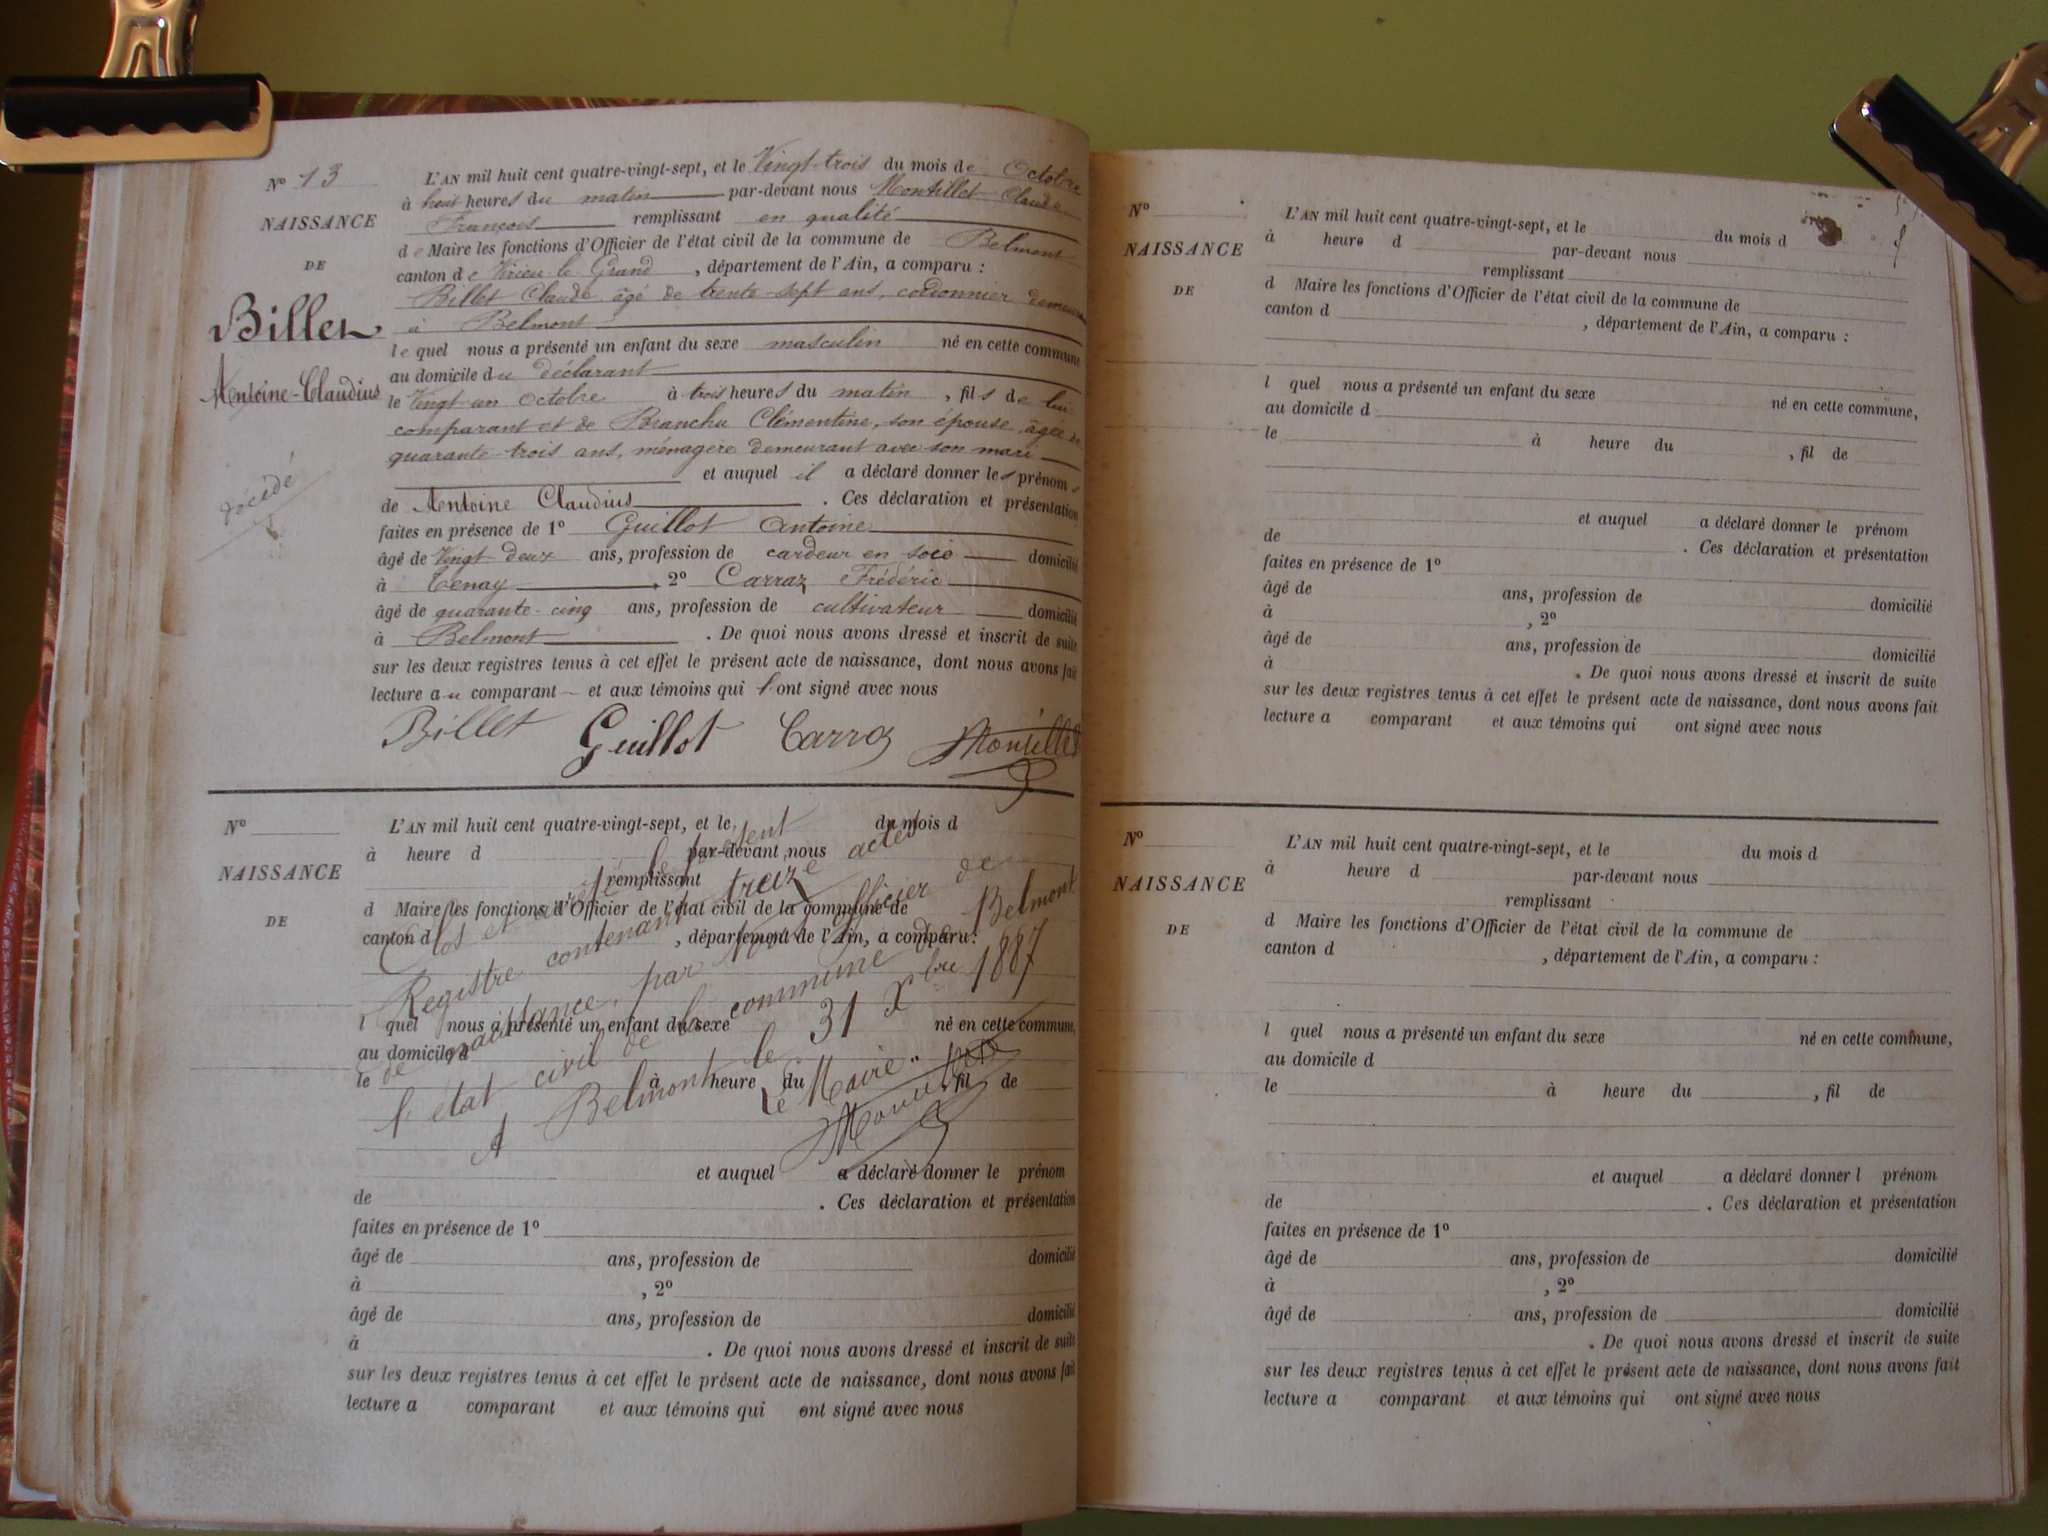 N° 13
NAISSANCE
DE
Billet
Antoine-Claudius
décédé
L'AN mil huit cent quatre-vingt-sept, et le Vingt-trois du mois de Octobre
à huit heures du matin par-devant nous Montillet Claude
François remplissant en qualité
de Maire les fonctions d'Officier de l'état civil de la commune de Belmont
canton de Virieu le Grand, département de l'Ain, a comparu :
Billet Claude, âgé de trente-sept ans, cordonnier demeurant
à Belmont
lequel nous a présenté un enfant du sexe masculin né en cette commune
au domicile du déclarant
le Vingt un octobre à trois heures du matin, fils de lui
comparant et de Branche Clémentine, son épouse, âgée de
quarante-trois ans, ménagère demeurant avec son mari
et auquel il a déclaré donner les prénoms
de Antoine Claudius. Ces déclaration et présentation
faites en présence de 1° Guillot Antoine
âgé de Vingt deux ans, profession de cardeur en soie domicilié
à Tenay, 2° Carraz Frédéric
âgé de quarante-cinq ans, profession de cultivateur domicilié
à Belmont. De quoi nous avons dressé et inscrit de suite
sur les deux registres tenus à cet effet le présent acte de naissance, dont nous avons fait
lecture au comparant et aux témoins qui l'ont signé avec nous
Billet Guillot Carraz Montillet
N°
NAISSANCE
DE
L'AN mil huit cent quatre-vingt-sept, et le du mois d
à heure d par-devant nous
remplissant
d Maire les fonctions d'Officier de l'état civil de la commune de
canton d , département de l'Ain, a comparu :
l quel nous a présenté un enfant du sexe né en cette commune,
au domicile d
le à heure du , fil de
et auquel a déclaré donner le prénom
de . Ces déclaration et présentation
faites en présence de 1°
âgé de ans, profession de domicilié
à , 2°
âgé de ans, profession de domicilié
à . De quoi nous avons dressé et inscrit de suite
sur les deux registres tenus à cet effet le présent acte de naissance, dont nous avons fait
lecture a comparant et aux témoins qui ont signé avec nous
Clos et arrêté le présent
Registre contenant treize actes
de naissance, par Nous officier de
l'état civil de la commune de Belmont
A Belmont le 31 Xbre 1887
Le Maire
Montillet
N°
NAISSANCE
DE
L'AN mil huit cent quatre-vingt-sept, et le du mois d
à heure d par-devant nous
remplissant
d Maire les fonctions d'Officier de l'état civil de la commune de
canton d , département de l'Ain, a comparu :
l quel nous a présenté un enfant du sexe né en cette commune,
au domicile d
le à heure du , fil de
et auquel a déclaré donner le prénom
de . Ces déclaration et présentation
faites en présence de 1°
âgé de ans, profession de domicilié
à , 2°
âgé de ans, profession de domicilié
à . De quoi nous avons dressé et inscrit de suite
sur les deux registres tenus à cet effet le présent acte de naissance, dont nous avons fait
lecture a comparant et aux témoins qui ont signé avec nous
N°
NAISSANCE
DE
L'AN mil huit cent quatre-vingt-sept, et le du mois d
à heure d par-devant nous
remplissant
d Maire les fonctions d'Officier de l'état civil de la commune de
canton d , département de l'Ain, a comparu :
l quel nous a présenté un enfant du sexe né en cette commune,
au domicile d
le à heure du , fil de
et auquel a déclaré donner l prénom
de . Ces déclaration et présentation
faites en présence de 1°
âgé de ans, profession de domicilié
à , 2°
âgé de ans, profession de domicilié
. De quoi nous avons dressé et inscrit de suite
sur les deux registres tenus à cet effet le présent acte de naissance, dont nous avons fait
lecture a comparant et aux témoins qui ont signé avec nous